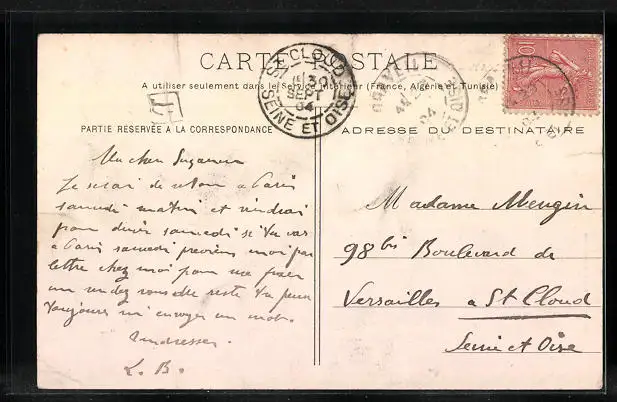 CARTE POSTALE
A utiliser seulement dans le Service Intérieur (France, Algérie et Tunisie)
T
ST CLOUD
30
SEPT
04
SEINE ET OISE
10
PARTIE RÉSERVÉE A LA CORRESPONDANCE
Je serai de retour à Paris
samedi matin et viendrai
pour samedi si tu vas
à Paris samedi préviens moi par
lettre chez moi pour me fixer
un rendez vous reste tu peux
toujours m'envoyer un mot.
L. B.
ADRESSE DU DESTINATAIRE
Madame Mengin
98 bis Boulevard de
Versailles à St Cloud
Seine et Oise